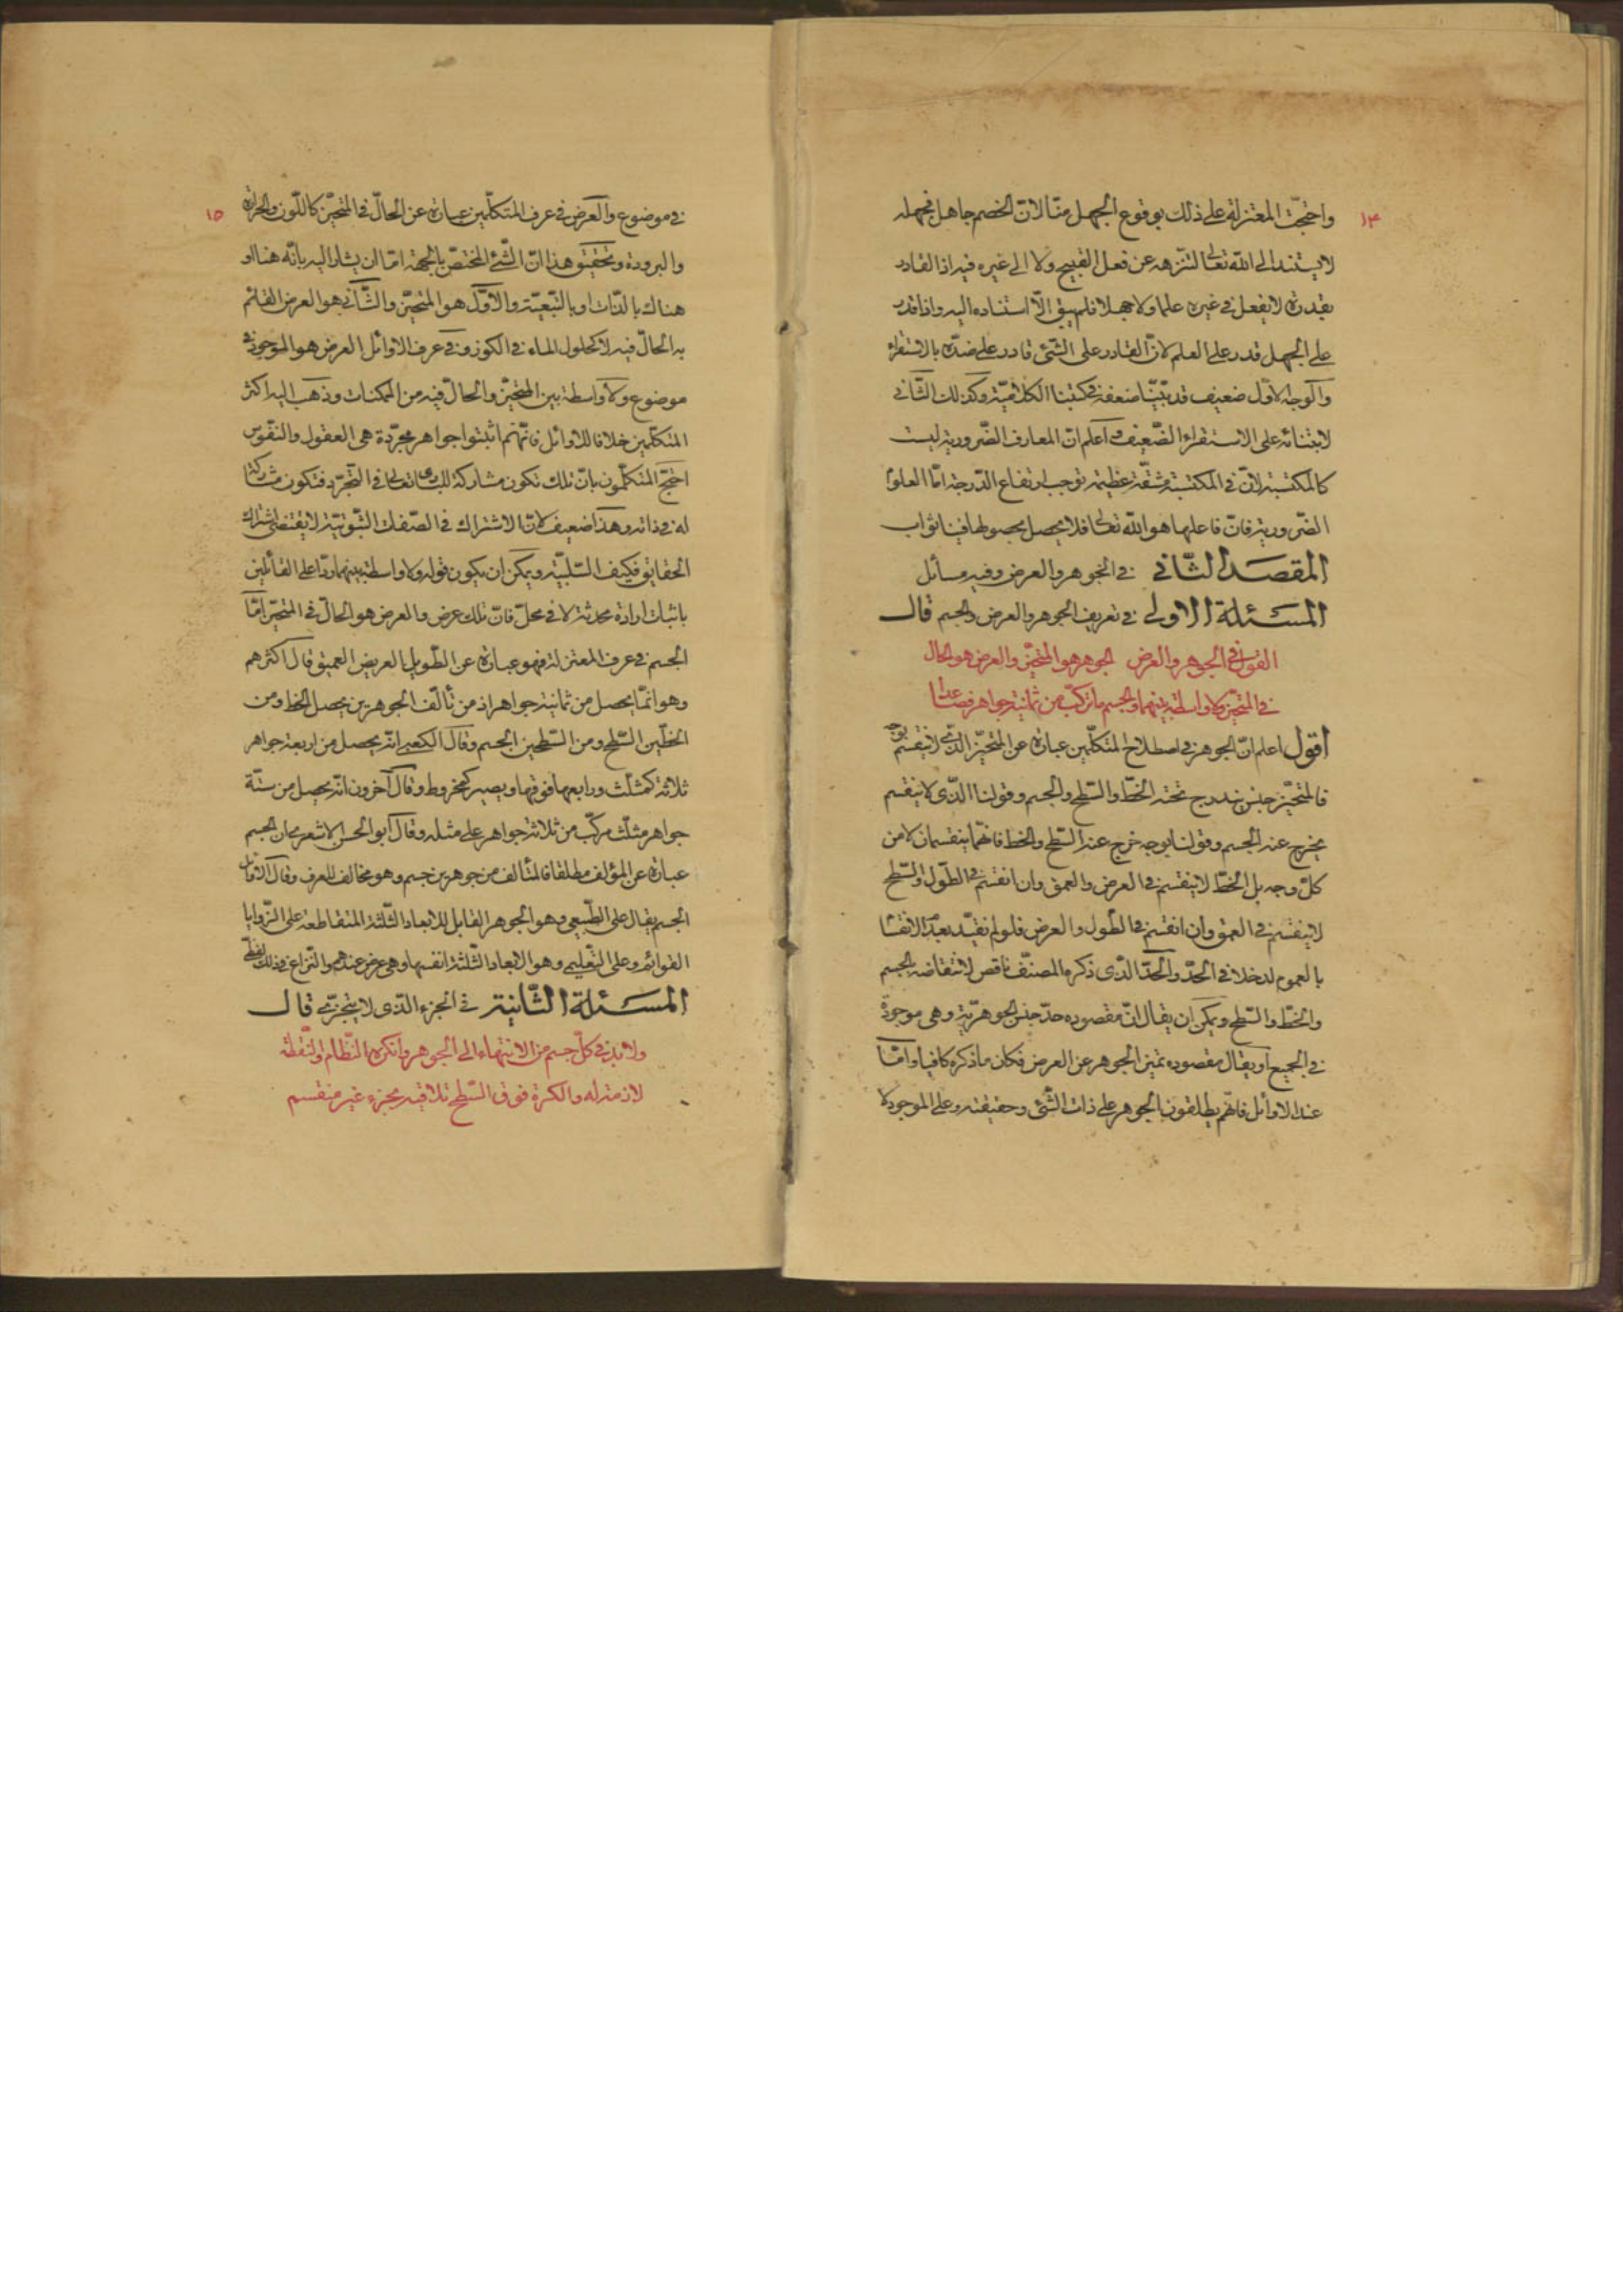 ١٤
واحتجّت المعتزلة على ذلك بوقوع الجهل منّا لانّ الخصم جاهل فجهله
لا يستند الى الله تعالى لتنزهه عن فعل القبيح ولا الى غيره فيه اذ القادر
بقدرة لا يفعل فى غيره علما ولا جهلا فلم يبق الّا استناده اليه واذا قدر
على الجهل قدر على العلم لانّ القادر على الشئ قادر على ضدّه بالاستقراء
والوجه الاول ضعيف قد بيّنا ضعفه فى كتبنا الكلاميّة وكذلك الثّانى
لابتنائه على الاستقراء الضّعيف واعلم انّ المعارف الضّرورية ليست
كالمكتسبة لانّ فى المكتسبة مشقّة عظيمة توجب ارتفاع الدّرجة امّا العلوم
الضّرورية فانّ فاعلها هو الله تعالى فلا يحصل بحصولها فينا ثواب
المقصد الثّانى فى الجوهر والعرض وفيه مسائل
المسئلة الاولى فى تعريف الجوهر والعرض والجسم قال
القول فى الجوهر والعرض الجوهر هو المتحيّز والعرض هو الحال
فى المتحيّز ولا واسطة بينهما والجسم ما تركّب من ثمانية جواهر فصاعدا
اقول اعلم انّ الجوهر فى اصطلاح المتكلّمين عبارة عن المتحيّز الّذى لا ينقسم بوجه
فالمتحيّز جنس يندرج تحته الخطّ والسّطح والجسم وقولنا الّذى لا ينقسم
يخرج عنه الجسم وقولنا بوجه خرج عنه السّطح والخط فانّهما ينقسمان لا من
كلّ وجه بل الخطّ لا ينقسم فى العرض والعمق وان انقسم فى الطّول والسّطح
لا ينقسم فى العمق وان انقسم فى الطّول والعرض فلو لم نقيّد بعدم الانقسام
بالعموم لدخلا فى الحدّ والحدّ الّذى ذكره المصنّف ناقص لانتقاضه بالجسم
والخطّ والسّطح ويمكن ان يقال انّ مقصوده حدّ جنس الجوهريّة وهى موجودة
فى الجميع او يقال مقصوده تميز الجوهر عن العرض فكان ما ذكره كافيا وامّا
عند الاوائل فانّهم يطلقون الجوهر على ذات الشّئ وحقيقته وعلى الموجود لا
١٥
فى موضوع والعرض فى عرف المتكلّمين عبارة عن الحالّ فى المتحيّز كاللّون والحرارة
والبرودة وتحقيق هذا انّ الشّئ المختصّ بالجهة امّا ان يشار اليه بانّه هنا او
هناك بالذّات او بالتّبعيّة والاوّل هو المتحيّز والثّانى هو العرض القائم
به الحالّ فيه لا كحلول الماء فى الكوز وفى عرف الاوائل العرض هو الموجود فى
موضوع ولا واسطة بين المتحيّز والحالّ فيه من الممكنات وذهب اليه اكثر
المتكلّمين خلافا للاوائل فانّهم اثبتوا جواهر مجرّدة هى العقول والنفوس
احتجّ المتكلّمون بانّ تلك تكون مشاركة للبارى تعالى فى التجرّد فتكون مشاركة
له فى ذاته وهذا ضعيف لانّ الاشتراك فى الصّفات الثّبوتيّة لا يقتضى اشتراك
الحقايق فكيف السّلبيّة ويمكن ان يكون قوله ولا واسطة بينهما ردّا على القائلين
باثبات ارادة محدثة لا فى محلّ فانّ تلك عرض والعرض هو الحالّ فى المتحيّز امّا
الجسم فى عرف المعتزلة فهو عبارة عن الطّويل العريض العميق قال اكثرهم
وهو انّما يحصل من ثمانية جواهر اذ من تألّف الجوهرين يحصل الخط ومن
الخطّين السّطح ومن السّطحين الجسم وقال الكعبى انّه يحصل من اربعة جواهر
ثلاثة كمثلّث ورابعها فوقها ويصير كمخروط وقال آخرون انّه يحصل من ستّة
جواهر مثلّث مركّب من ثلاثة جواهر على مثله وقال ابو الحسن الاشعرى انّ الجسم
عبارة عن المؤلف مطلقا فالمتألف من جوهرين جسم وهو مخالف للعرف وقال الاوائل
الجسم يقال على الطّبيعى وهو الجوهر القابل للابعاد الثّلثة المتقاطعة على الزّوايا
القوائم وعلى التّعليمى وهو الابعاد الثّلثة انفسها وهى عرض عندهم والنّزاع فى ذلك لفظّى
المسئلة الثّانية فى الجزء الّذى لا يتجزّى قال
ولا بدّ فى كلّ جسم من الانتهاء الى الجوهر وانكره النّظّام والنّقطة
لازمة له والكرة فوق السّطح تلاقيه بجزء غير منقسم